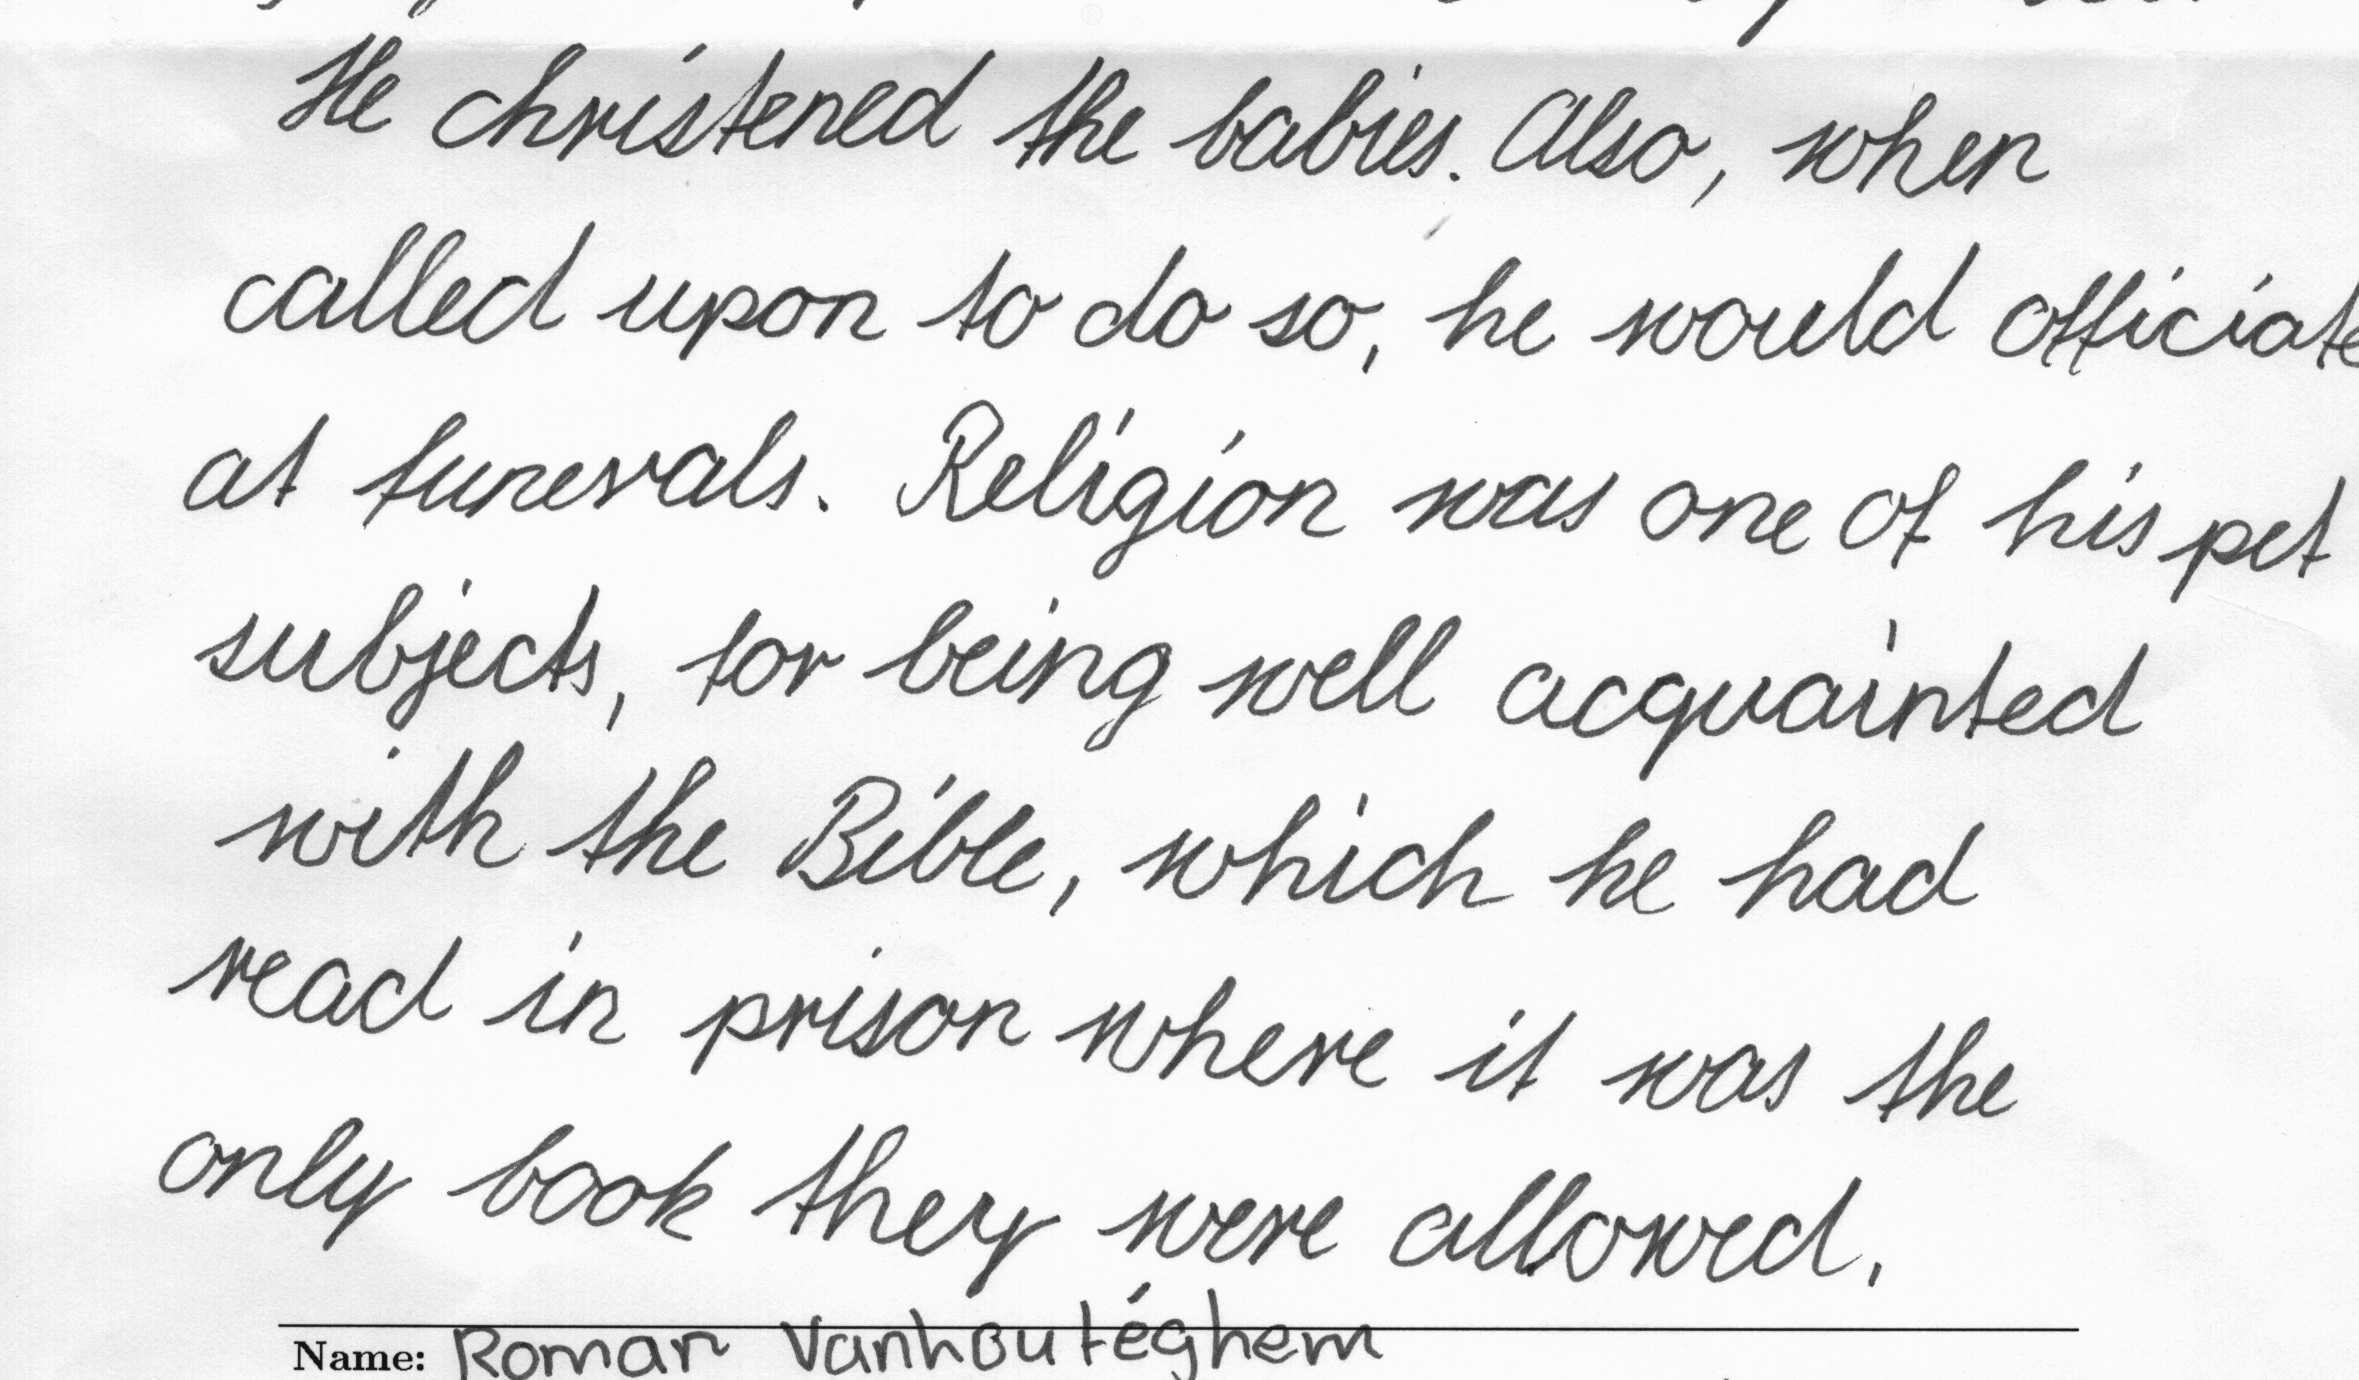 He christened the babies. Also, when
called upon to do so, he would officiate
at funerals. Religion was one of his pet
subjects, for being well acquainted
with the Bible, which he had
read in prison where it was the
only book they were allowed.
Name: Romar Vanhoutéghem